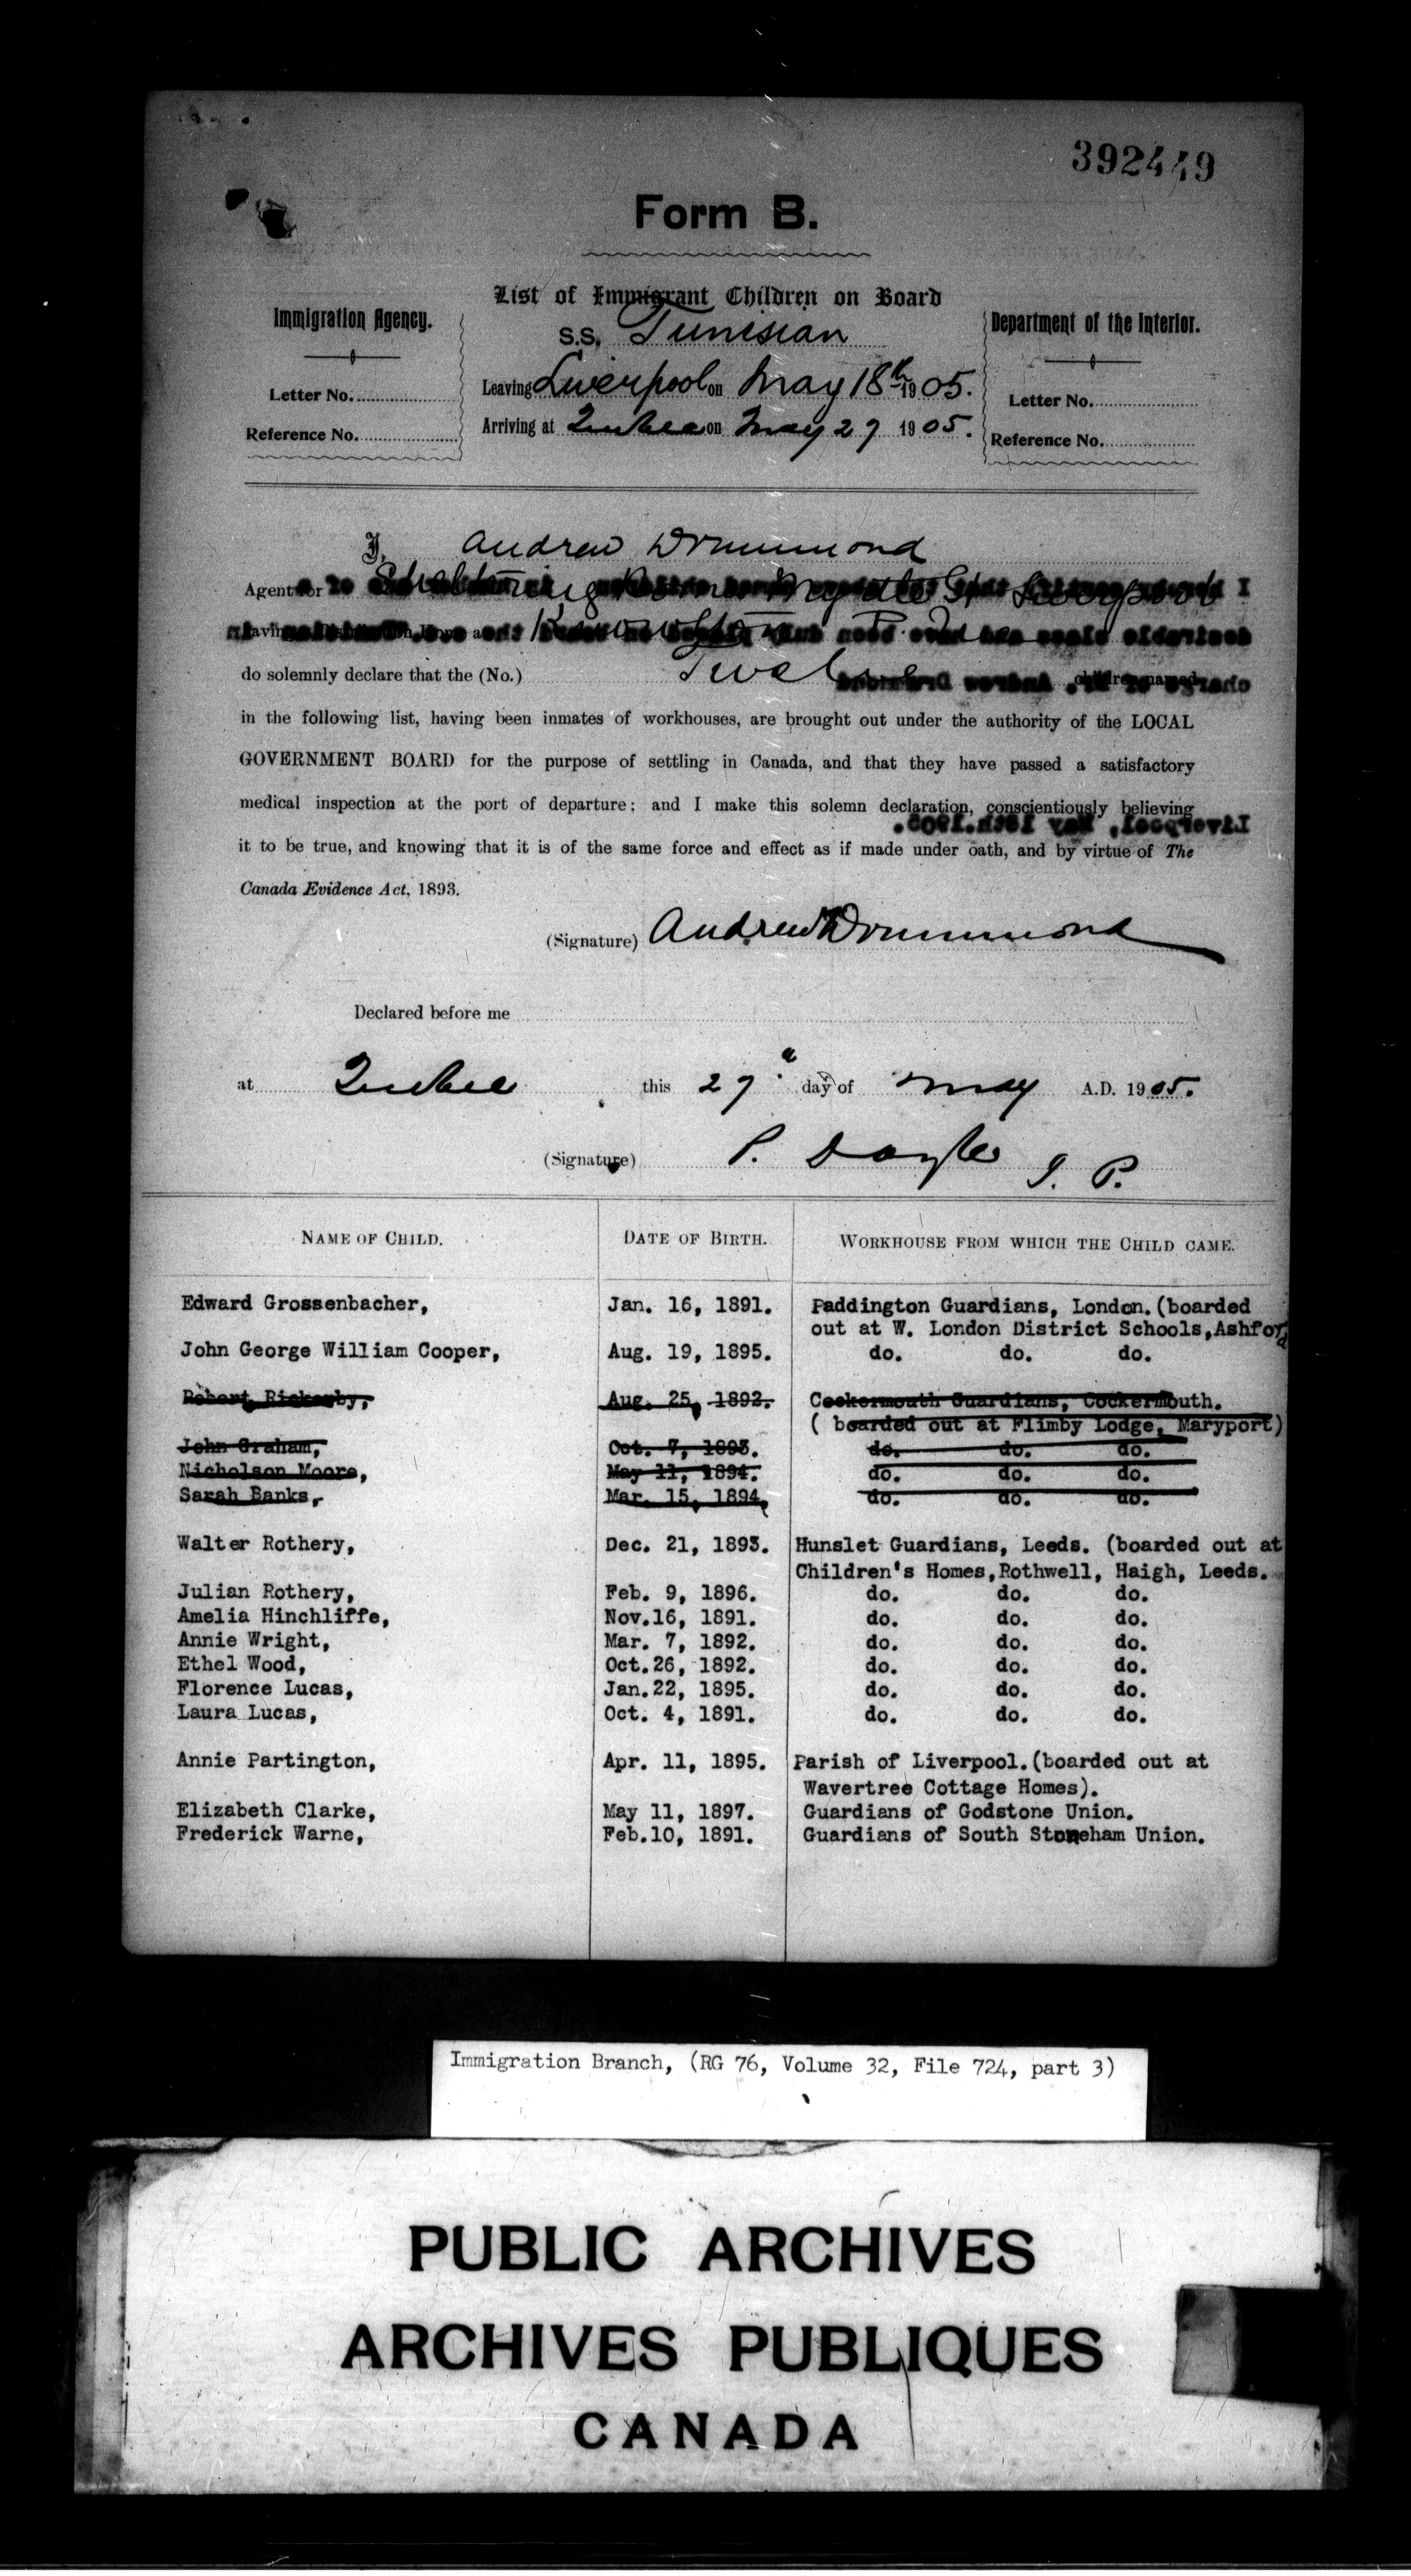 392449
Form B.
List of Immigrant Children on Board
Immigration Agency.
S.S. Tunisian
Department of the Interior.
Leaving Liverpool on May 18th 1905.
Letter No.
Letter No.
Arriving at Quebec on May 27 1905.
Reference No.
Reference No.
I, Andrew Drummond
Agent for Sheltering Home Myrtle St Liverpool
Knowlton P. Que
do solemnly declare that the (No.) Twelve children named
in the following list, having been inmates of workhouses, are brought out under the authority of the LOCAL
GOVERNMENT BOARD for the purpose of settling in Canada, and that they have passed a satisfactory
medical inspection at the port of departure; and I make this solemn declaration, conscientiously believing
Liverpool, May 18th.1905.
it to be true, and knowing that it is of the same force and effect as if made under oath, and by virtue of The
Canada Evidence Act, 1893.
(Signature) Andrew Drummond
Declared before me
at Quebec this 27th day of May A.D. 1905.
(Signature) P. Doyle J. P.
NAME OF CHILD. DATE OF BIRTH. WORKHOUSE FROM WHICH THE CHILD CAME.
Edward Grossenbacher, Jan. 16, 1891. Paddington Guardians, London.(boarded
out at W. London District Schools,Ashford
John George William Cooper, Aug. 19, 1895. do. do. do.
Robert Rickerby, Aug. 25, 1892. Cockermouth Guardians, Cockermouth.
( boarded out at Flimby Lodge, Maryport)
John Graham, Oct. 7, 1893. do. do. do.
Nicholson Moore, May 11, 1894. do. do. do.
Sarah Banks, Mar. 15, 1894, do. do. do.
Walter Rothery, Dec. 21, 1893. Hunslet Guardians, Leeds. (boarded out at
Children's Homes,Rothwell, Haigh, Leeds.
Julian Rothery, Feb. 9, 1896. do. do. do.
Amelia Hinchliffe, Nov.16, 1891. do. do. do.
Annie Wright, Mar. 7, 1892. do. do. do.
Ethel Wood, Oct.26, 1892. do. do. do.
Florence Lucas, Jan.22, 1895. do. do. do.
Laura Lucas, Oct. 4, 1891. do. do. do.
Annie Partington, Apr. 11, 1895. Parish of Liverpool.(boarded out at
Wavertree Cottage Homes).
Elizabeth Clarke, May 11, 1897. Guardians of Godstone Union.
Frederick Warne, Feb.10, 1891. Guardians of South Stoneham Union.
Immigration Branch, (RG 76, Volume 32, File 724, part 3)
PUBLIC ARCHIVES
ARCHIVES PUBLIQUES
CANADA